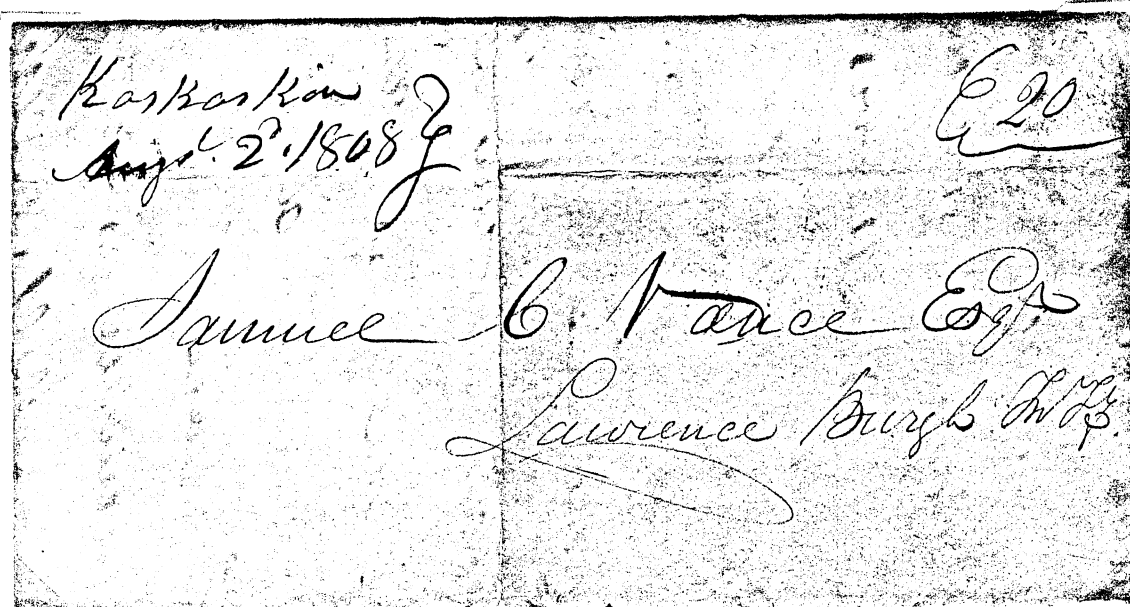 Kaskaskia
Augst. 2d. 1808
20
Samuel C. Vance Esqr.
Lawrence Burgh